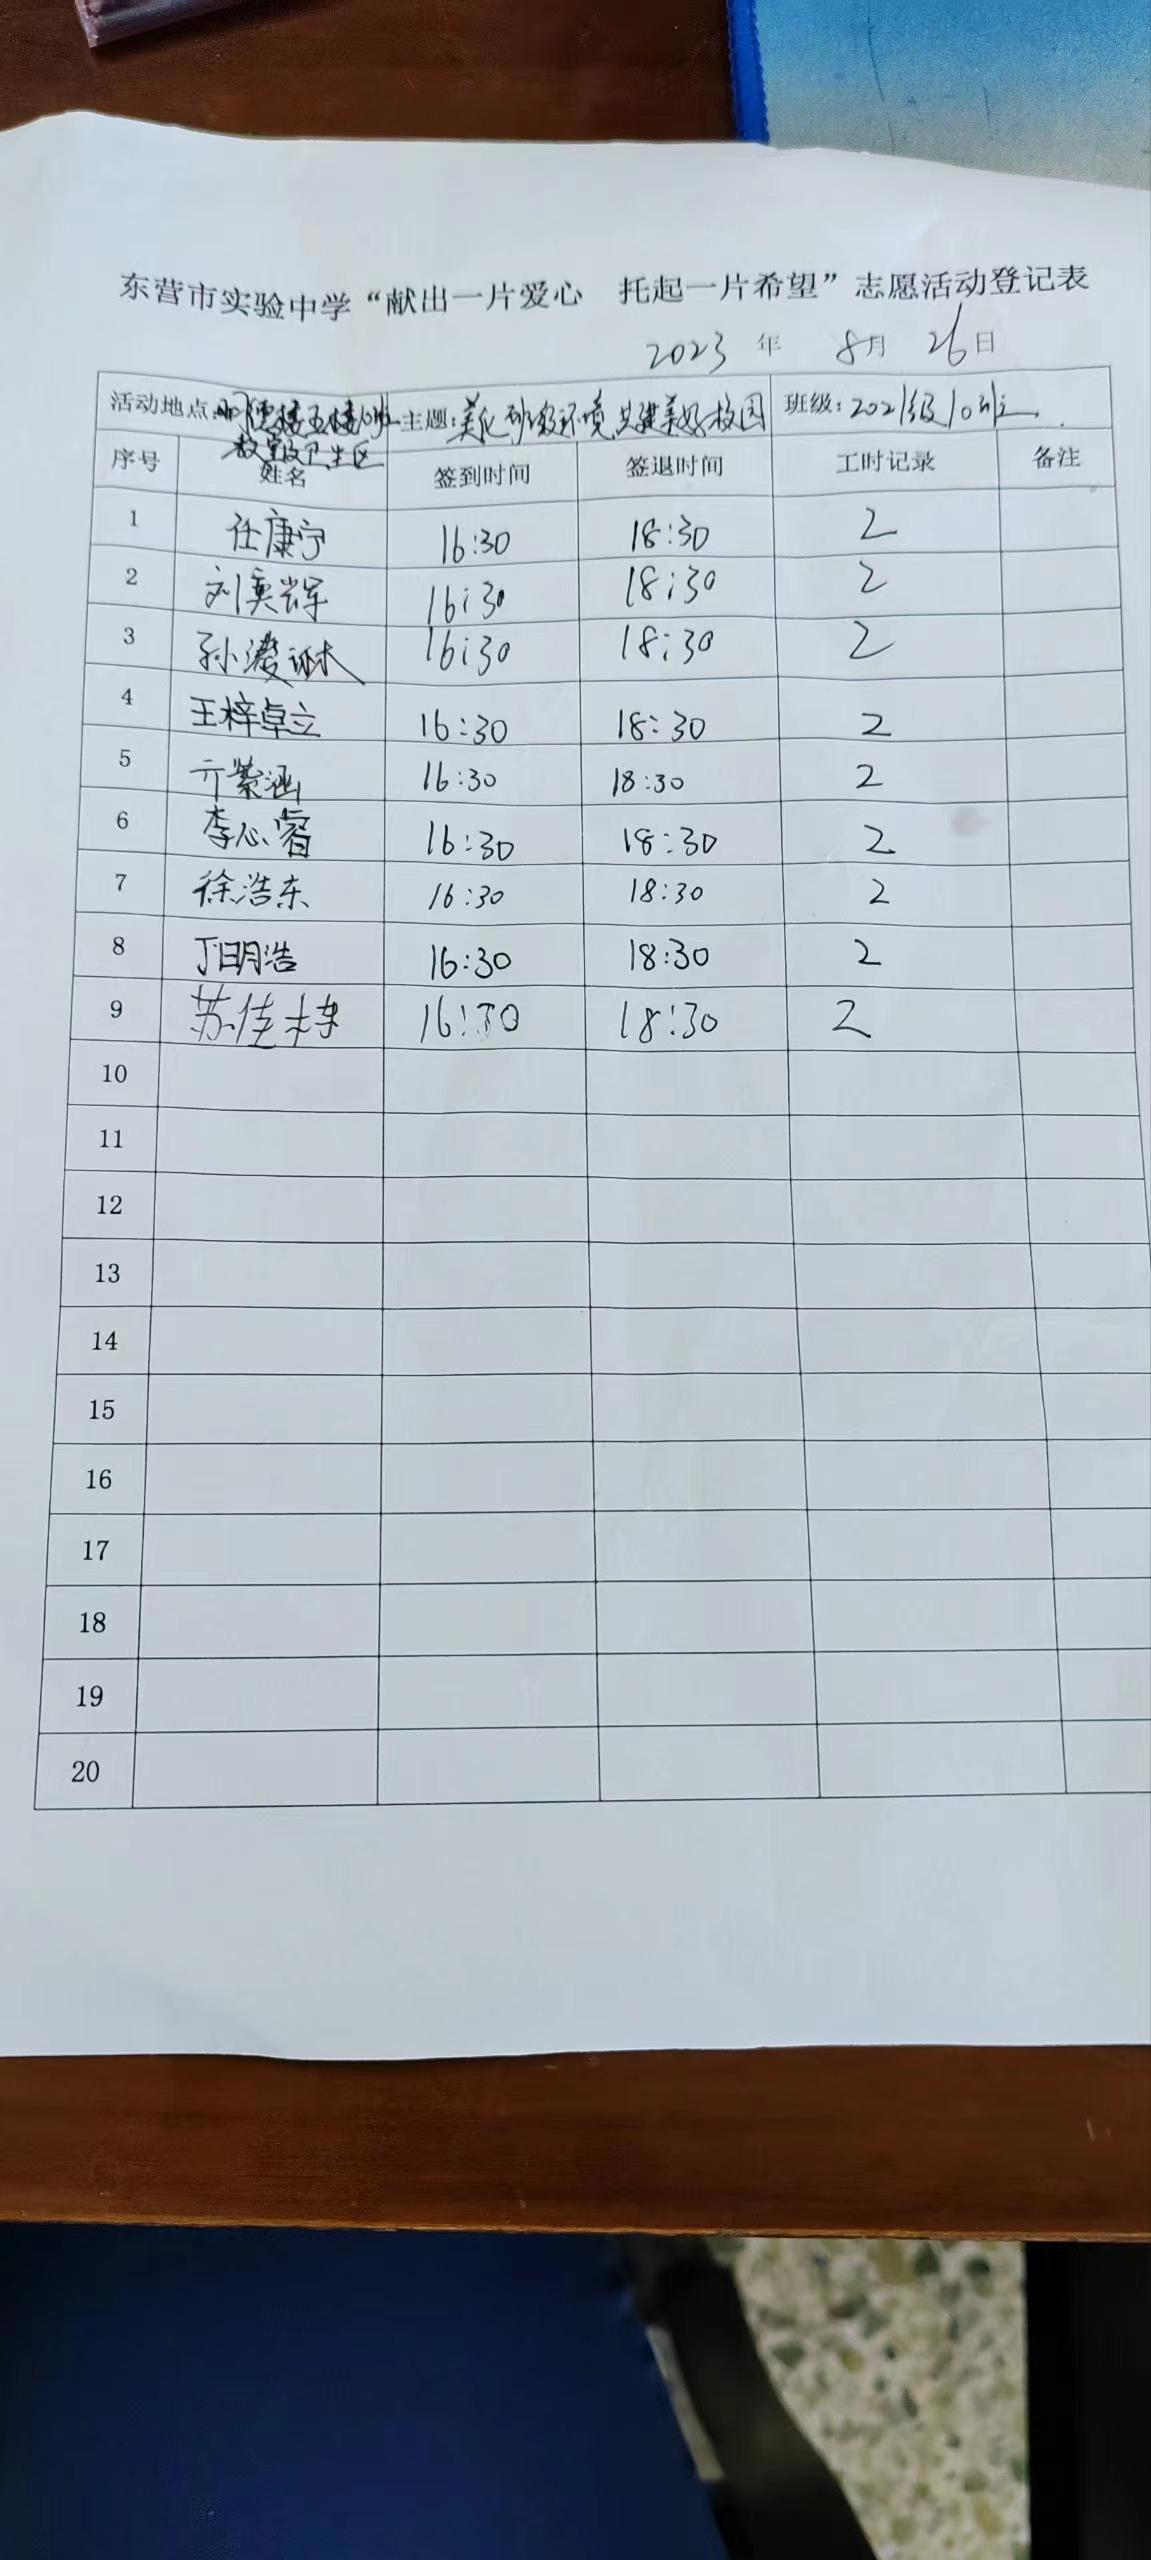 东营市实验中学“献出一片爱心 托起一片希望”志愿活动登记表
2023 年 8月 26日
活动地点:明德楼五楼10班 主题:美化班级环境,共建美好校园 班级:2021级10班
教室及卫生区
序号 姓名 签到时间 签退时间 工时记录 备注
1 任康宁 16:30 18:30 2
2 刘奕辉 16:30 18:30 2
3 孙 16:30 18:30 2
4 王梓卓立 16:30 18:30 2
5 亓紫涵 16:30 18:30 2
6 李心睿 16:30 18:30 2
7 徐浩东 16:30 18:30 2
8 丁明浩 16:30 18:30 2
9 苏佳梓 16:30 18:30 2
10
11
12
13
14
15
16
17
18
19
20